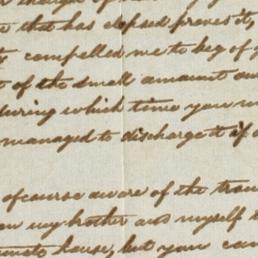 that has elapsed proves it,
compelled me to beg of
of the small amount
during which time you
managed to discharge it if
of course aware of the
my brother and myself
house, but you can